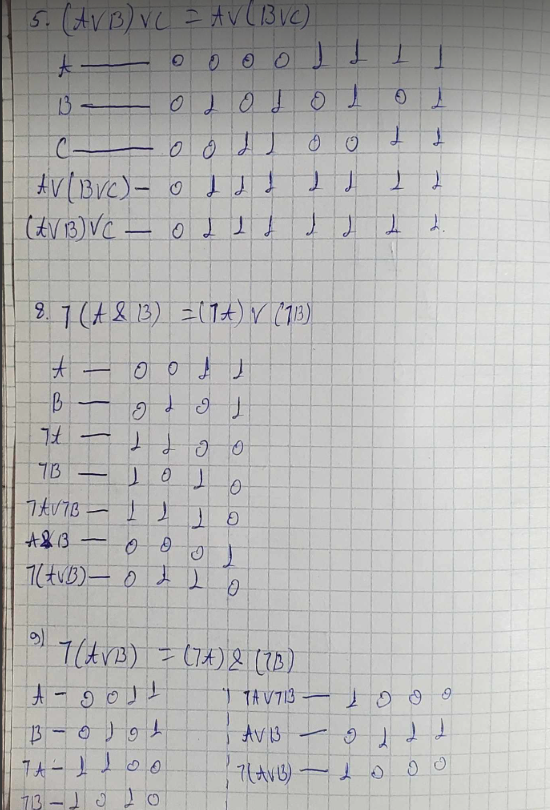 5. (A∨B)∨C = A∨(B∨C)
A — 0 0 0 0 1 1 1 1
B — 0 1 0 1 0 1 0 1
C — 0 0 1 1 0 0 1 1
A∨(B∨C) — 0 1 1 1 1 1 1 1
(A∨B)∨C — 0 1 1 1 1 1 1 1.
8. ¬(A & B) = (¬A) ∨ (¬B)
A — 0 0 1 1
B — 0 1 0 1
¬A — 1 1 0 0
¬B — 1 0 1 0
¬A∨¬B — 1 1 1 0
A&B — 0 0 0 1
¬(A∨B) — 0 1 1 0
9) ¬(A∨B) = (¬A) & (¬B)
A — 0 0 1 1
B — 0 1 0 1
¬A — 1 1 0 0
¬B — 1 0 1 0
¬A∨¬B — 1 0 0 0
A∨B — 0 1 1 1
¬(A∨B) — 1 0 0 0